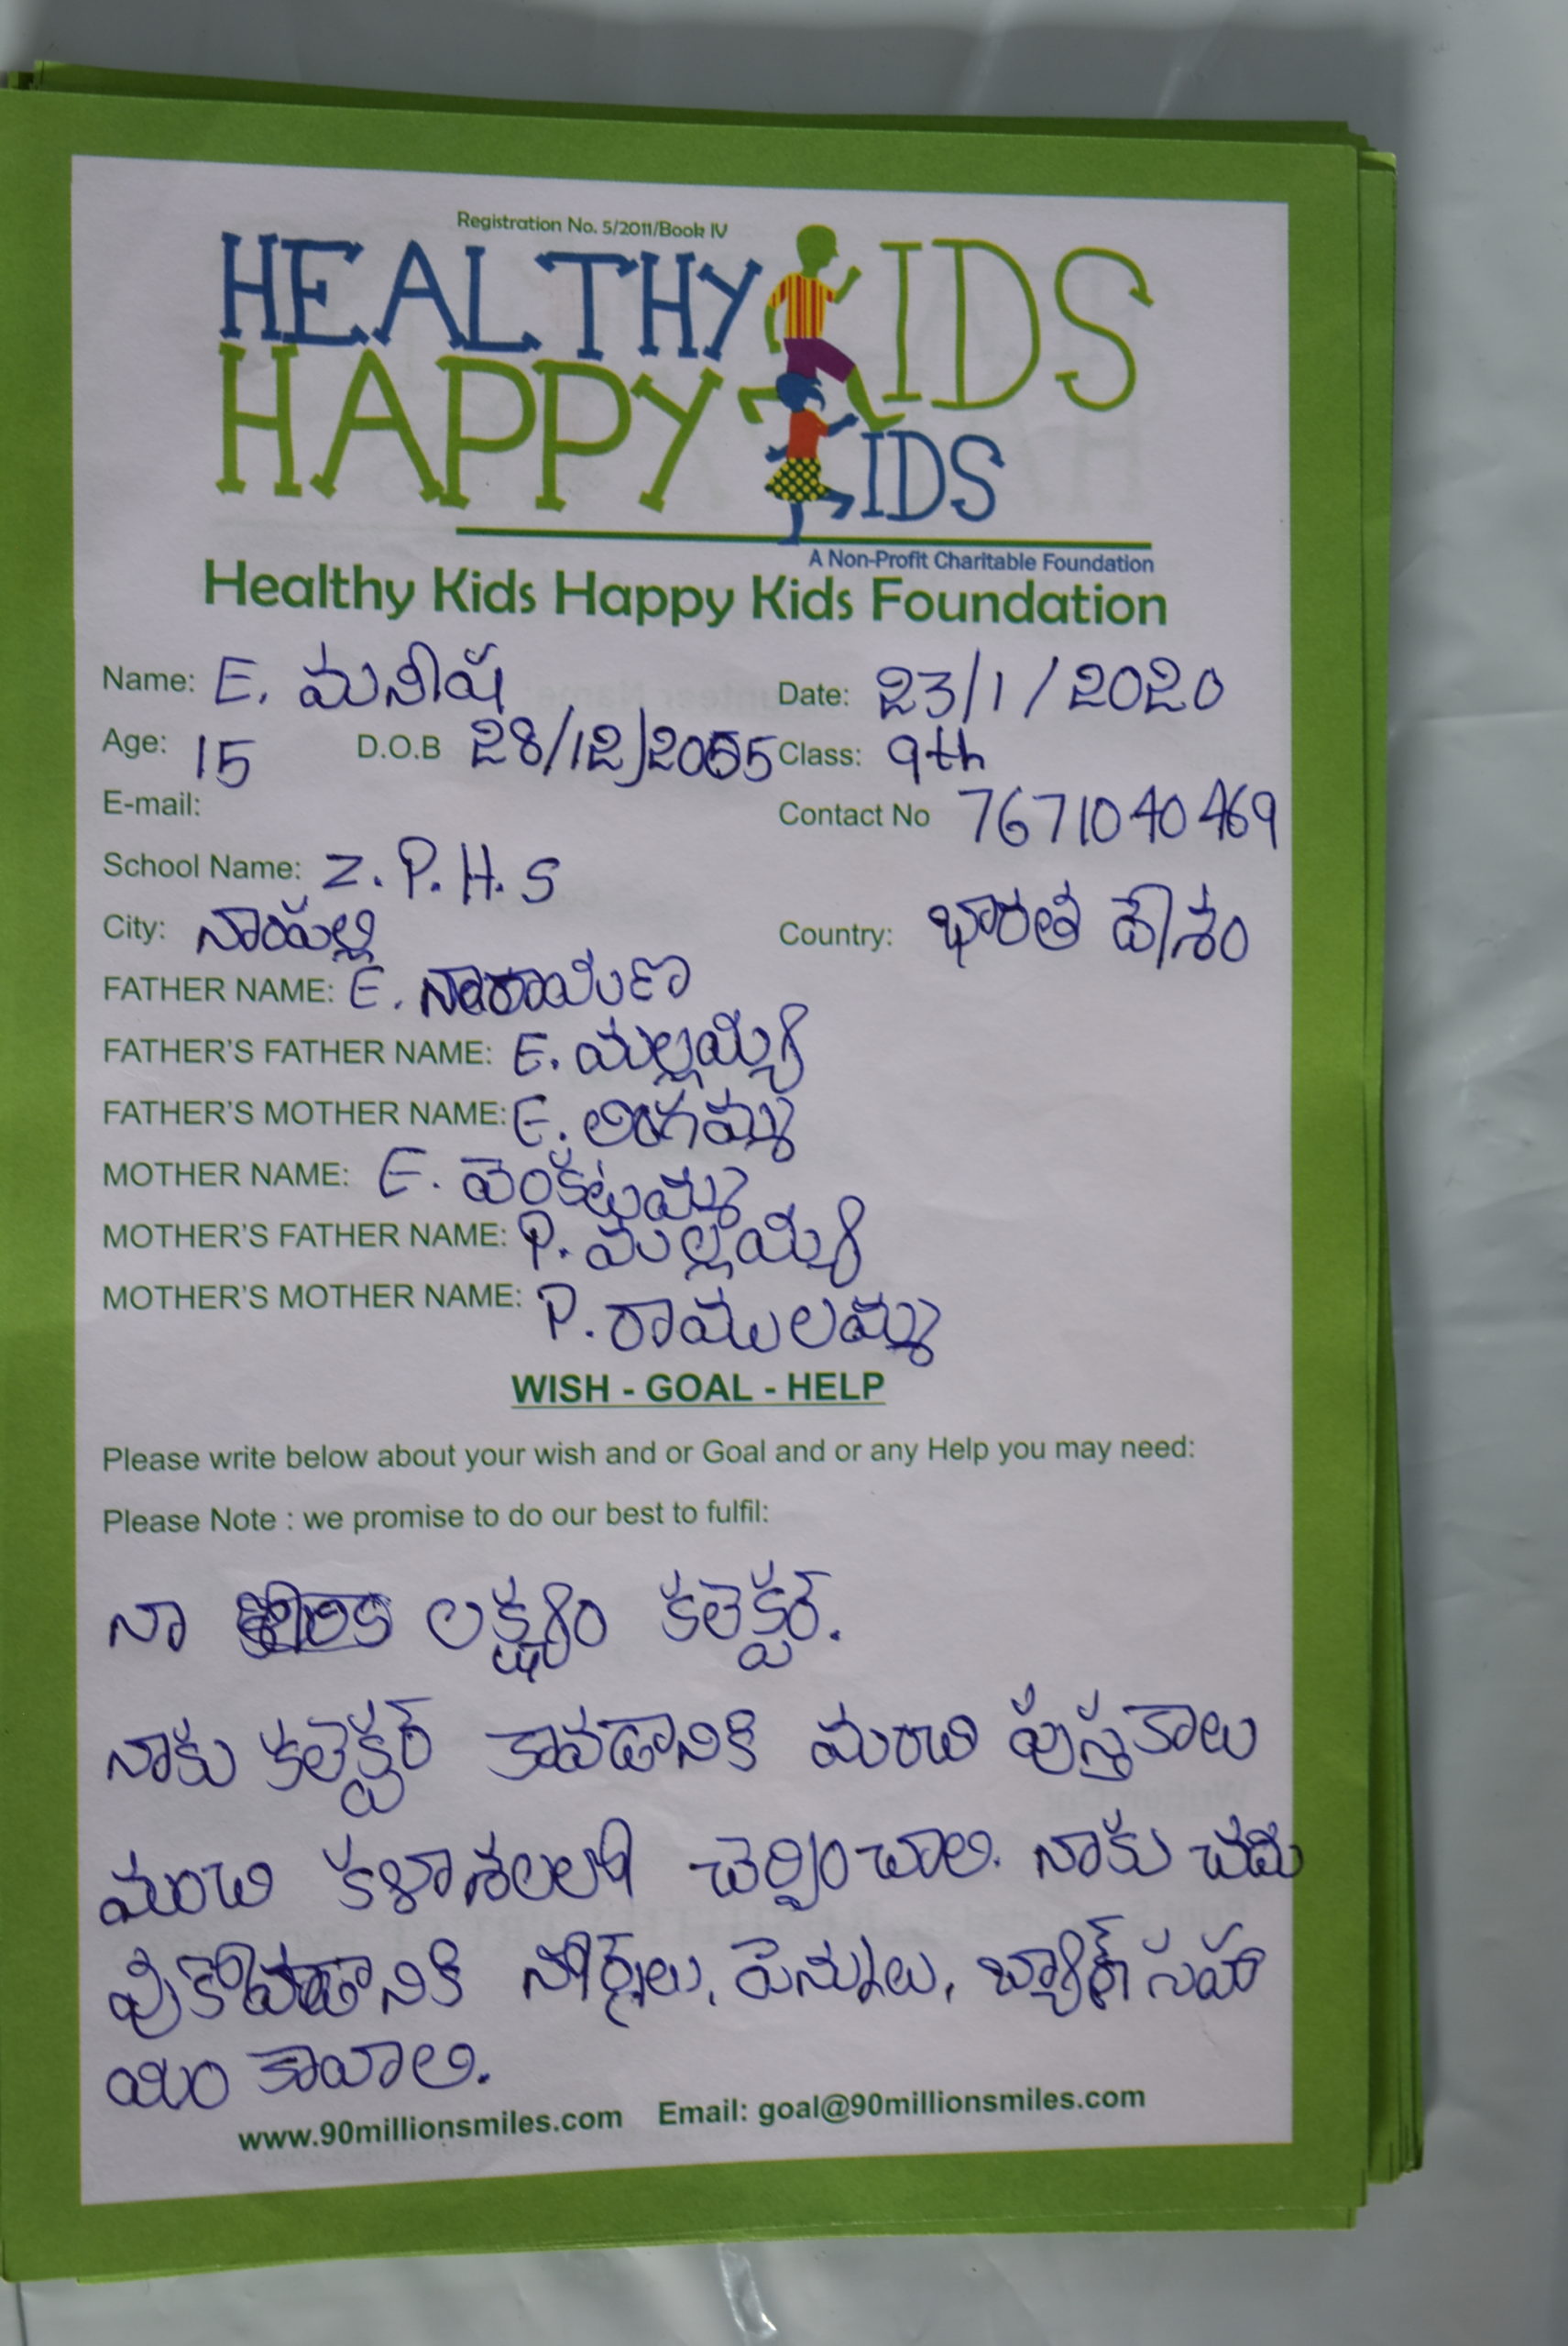 Registration No. 5/2011/Book IV
HEALTHY KIDS
HAPPY KIDS
A Non-Profit Charitable Foundation
Healthy Kids Happy Kids Foundation
Name: E. మనీష Date: 23/1/2020
Age: 15 D.O.B 28/12/2005 Class: 9th
E-mail: Contact No 7671040469
School Name: Z.P.H.S
City: Country: భారత దేశం
FATHER NAME: E. నారాయణ
FATHER'S FATHER NAME: E. మల్లయ్య
FATHER'S MOTHER NAME: E. లింగమ్మ
MOTHER NAME: E. వెంకటమ్మ
MOTHER'S FATHER NAME: P. మల్లయ్య
MOTHER'S MOTHER NAME: P. రాములమ్మ
WISH - GOAL - HELP
Please write below about your wish and or Goal and or any Help you may need:
Please Note : we promise to do our best to fulfil:
నా లక్ష్యం కలెక్టర్.
నాకు కలెక్టర్ కావడానికి మంచి పుస్తకాలు
మంచి కళాశలలో చెర్పించాలి. నాకు చదు
వుకోవడానికి నోట్సులు, పెన్నులు, బ్యాగ్ సహా
యం కావాలి.
www.90millionsmiles.com Email: goal@90millionsmiles.com